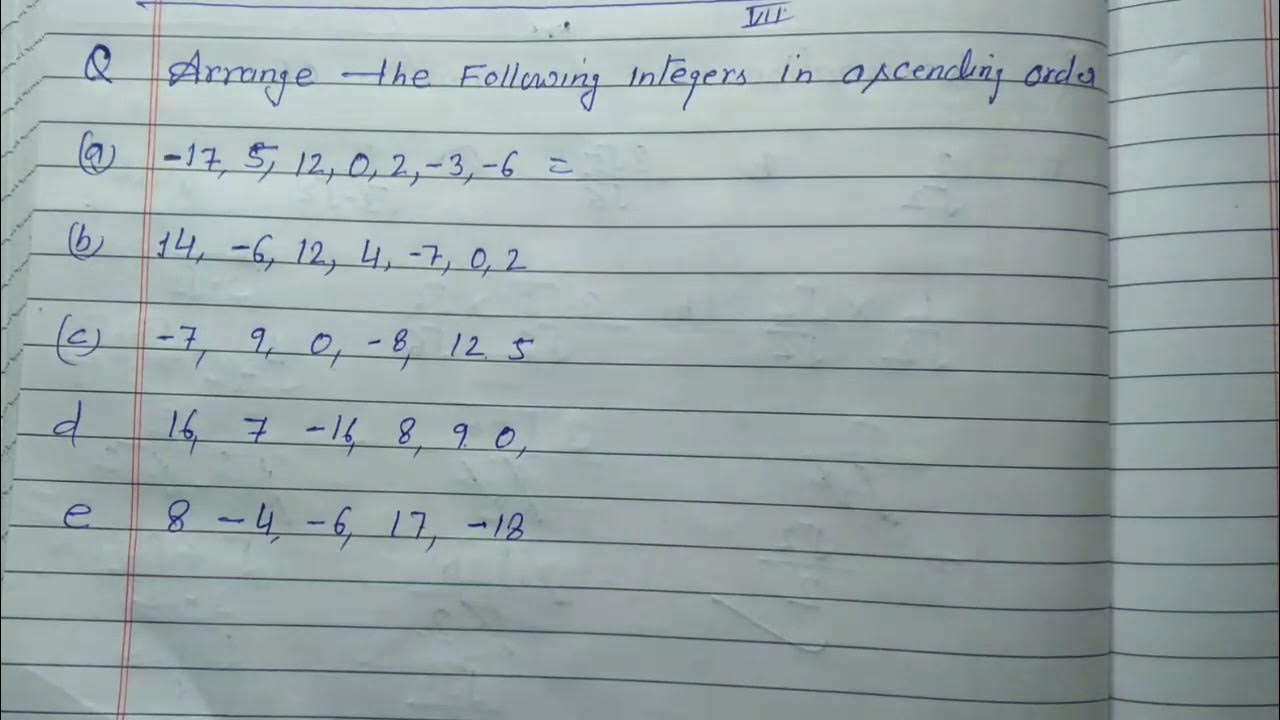 VII
Q Arrange the Following integers in ascending order
(a) -17, 5, 12, 0, 2, -3, -6 =
(b) 14, -6, 12, 4, -7, 0, 2
(c) -7, 9, 0, -8, 12. 5
d 16, 7 -16, 8, 9. 0,
e 8 -4, -6, 17, -18